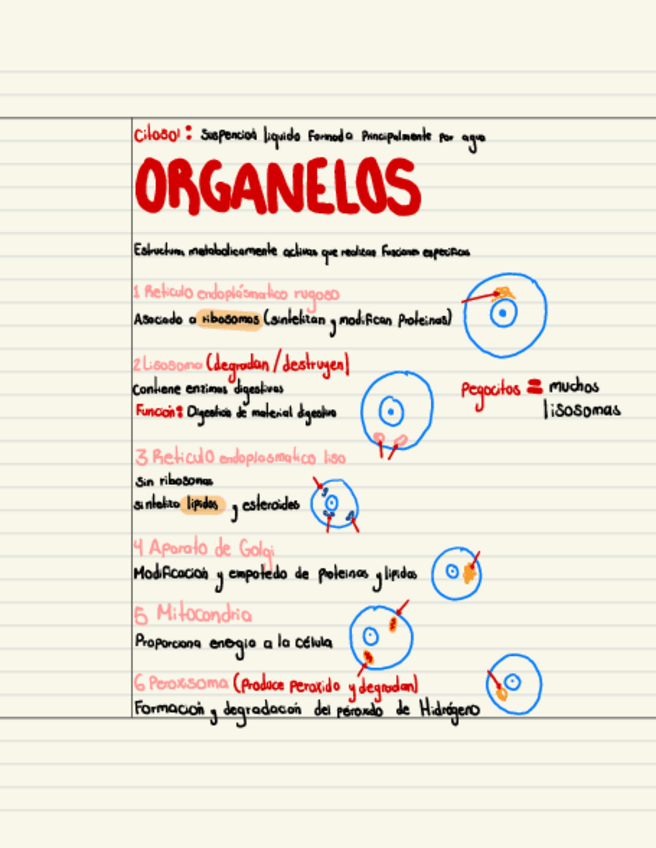 Citosol: Suspención liquida Formada Principalmente por agua
ORGANELOS
Estructuras metabolicamente activas que realizan funciones especificas
1 Reticulo endoplásmatico rugoso
Asociado a ribosomas (sintetizan y modifican Proteinas)
2 Lisosoma (degradan / destruyen)
Contiene enzimas digestivas
Función: Digestión de material digestivo
Pegocitos = muchos
lisosomas
3 Reticulo endoplasmatico liso
Sin ribosomas
sintetiza lipidos y esteroides
4 Aparato de Golgi
Modificación y empatedo de Proteinas y lipidos
5 Mitocondria
Proporciona energia a la célula
6 Peroxisoma (Produce Peroxido y degradan)
Formación y degradación del peróxido de Hidrógeno